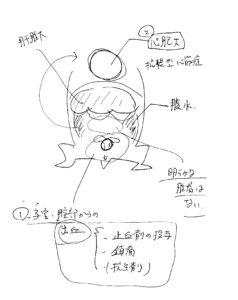 ②
心肥大
拡張型心筋症
肝肥大
腹水
明らかな
腫瘍は
ない
①子宮・膣からの
出血
- 止血剤の投与
- 鎮痛